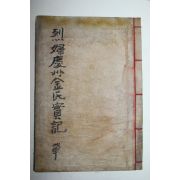 烈婦慶州金氏實記
單